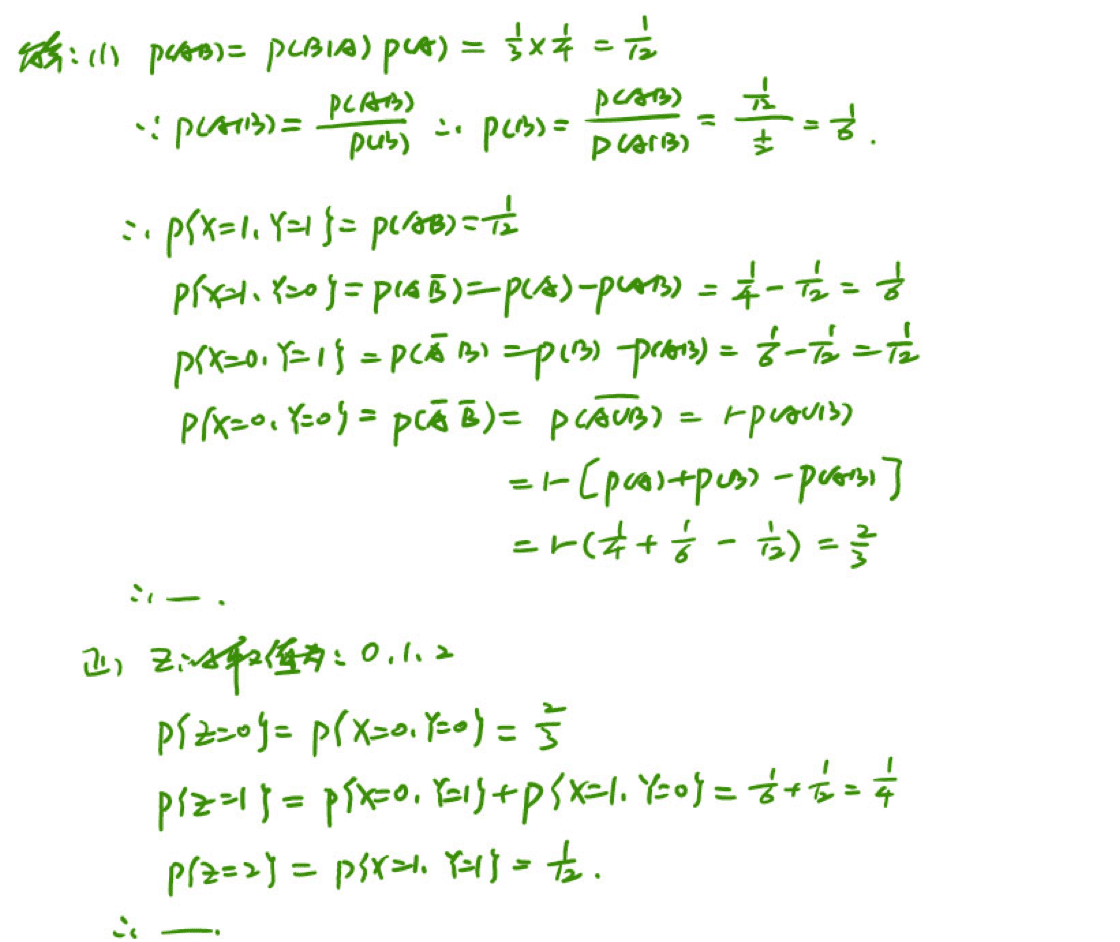 解：(1) P(AB) = P(B|A) P(A) = 1/3 × 1/4 = 1/12
∵ P(A|B) = P(AB)/P(B) ∴ P(B) = P(AB)/P(A|B) = (1/12)/(1/2) = 1/6.
∴ P{X=1, Y=1} = P(AB) = 1/12
P{X=1, Y=0} = P(AB̄) = P(A) - P(AB) = 1/4 - 1/12 = 1/6
P{X=0, Y=1} = P(ĀB) = P(B) - P(AB) = 1/6 - 1/12 = 1/12
P{X=0, Y=0} = P(Ā B̄) = P(\overline{A∪B}) = 1-P(A∪B)
= 1-[P(A)+P(B) - P(AB)]
= 1-(1/4 + 1/6 - 1/12) = 2/3
∴ — .
(2) Z 取值为: 0, 1, 2
P{Z=0} = P{X=0, Y=0} = 2/3
P{Z=1} = P{X=0, Y=1} + P{X=1, Y=0} = 1/6 + 1/12 = 1/4
P{Z=2} = P{X=1, Y=1} = 1/12.
∴ — .